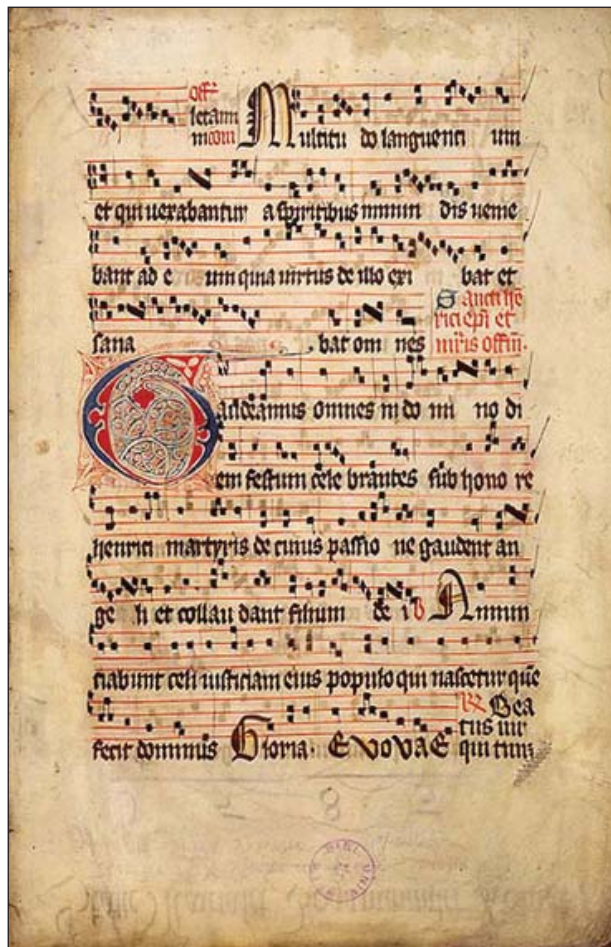 Multitu do languenti um
et qui uexabantur a spiritibus inmun dis uenie
bant ad e um quia uirtus de illo exi bat et
sana bat om nes
Gaudeamus omnes in do mi no di
em festum cele brantes sub hono re
henrici martyris de cuius passio ne gaudent an
ge li et collau dant filium de i Annun
ciabunt celi iusticiam eius populo qui nascetur que
fecit dominus Gloria. EVOVAE
Bea
tus uir
qui